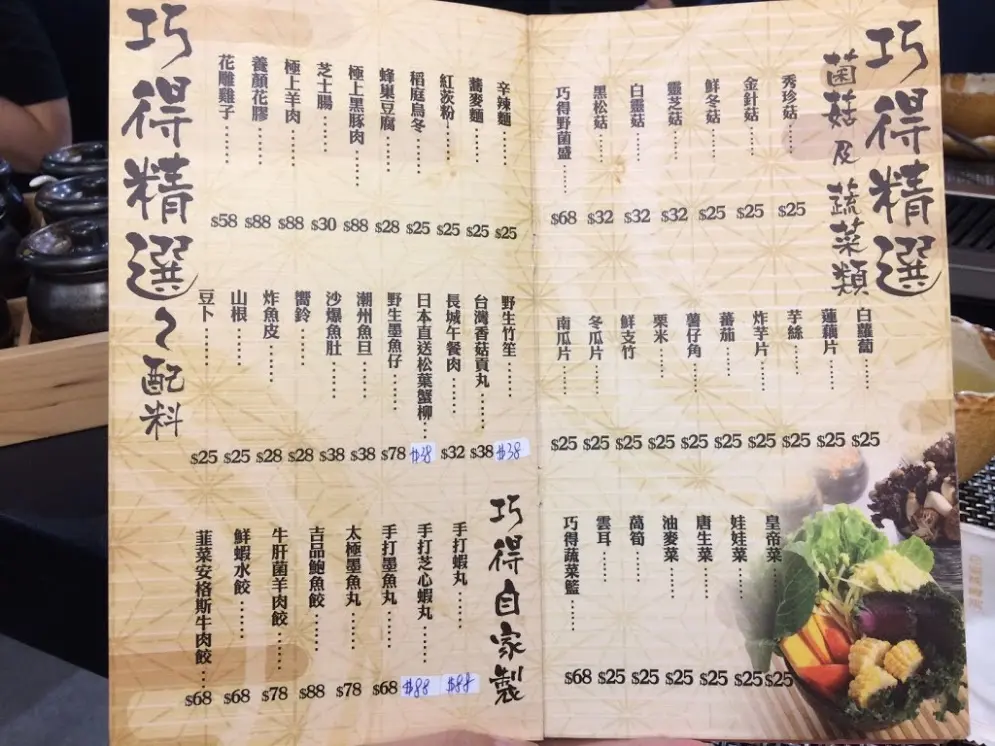 巧得精選
菌菇及蔬菜類
秀珍菇⋯⋯$25
金針菇⋯⋯$25
鮮冬菇⋯⋯$25
靈芝菇⋯⋯$32
白靈菇⋯⋯$32
黑松菇⋯⋯$32
巧得野菌盛⋯⋯$68
白蘿蔔⋯⋯$25
蓮藕片⋯⋯$25
芋絲⋯⋯$25
炸芋片⋯⋯$25
蕃茄⋯⋯$25
薯仔角⋯⋯$25
栗米⋯⋯$25
鮮支竹⋯⋯$25
冬瓜片⋯⋯$25
南瓜片⋯⋯$25
皇帝菜⋯⋯$25
娃娃菜⋯⋯$25
唐生菜⋯⋯$25
油麥菜⋯⋯$25
萵筍⋯⋯$25
雲耳⋯⋯$25
巧得蔬菜籃⋯⋯$68
巧得精選~配料
辛辣麵⋯⋯$25
蕎麥麵⋯⋯$25
紅茨粉⋯⋯$25
稻庭烏冬⋯⋯$25
蜂巢豆腐⋯⋯$28
極上黑豚肉⋯⋯$88
芝士腸⋯⋯$30
極上羊肉⋯⋯$88
養顏花膠⋯⋯$88
花雕雞子⋯⋯$58
野生竹笙⋯⋯$38
台灣香菇貢丸⋯⋯$38
長城午餐肉⋯⋯$32
日本直送松葉蟹柳⋯⋯$38
野生墨魚仔⋯⋯$78
潮州魚旦⋯⋯$38
沙爆魚肚⋯⋯$38
嚮鈴⋯⋯$28
炸魚皮⋯⋯$28
山根⋯⋯$25
豆卜⋯⋯$25
巧得自家製
手打蝦丸⋯⋯$88
手打芝心蝦丸⋯⋯$88
手打墨魚丸⋯⋯$68
太極墨魚丸⋯⋯$78
吉品鮑魚餃⋯⋯$88
牛肝菌羊肉餃⋯⋯$78
鮮蝦水餃⋯⋯$68
韮菜安格斯牛肉餃⋯⋯$68